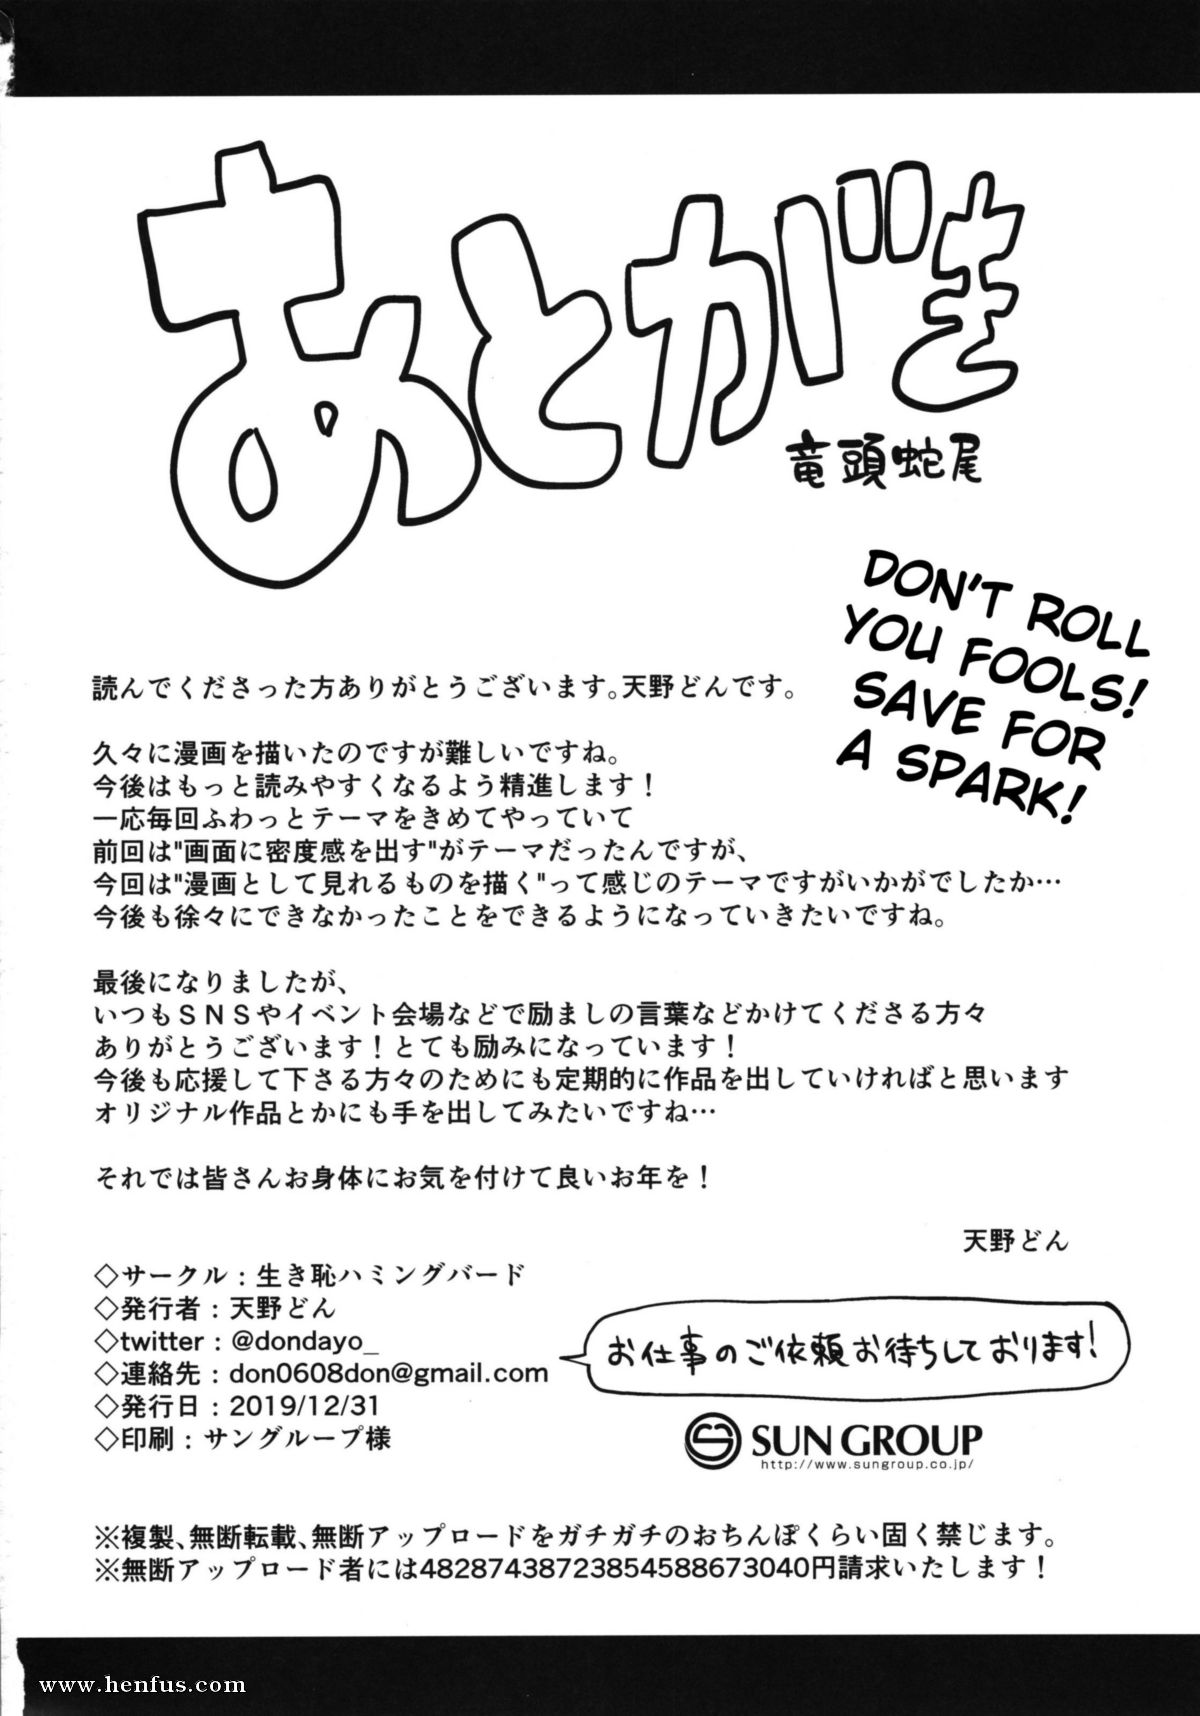 あとがき
竜頭蛇尾
DON'T ROLL
YOU FOOLS!
SAVE FOR
A SPARK!
読んでくださった方ありがとうございます。天野どんです。
久々に漫画を描いたのですが難しいですね。
今後はもっと読みやすくなるよう精進します！
一応毎回ふわっとテーマをきめてやっていて
前回は"画面に密度感を出す"がテーマだったんですが、
今回は"漫画として見れるものを描く"って感じのテーマですがいかがでしたか…
今後も徐々にできなかったことをできるようになっていきたいですね。
最後になりましたが、
いつもＳＮＳやイベント会場などで励ましの言葉などかけてくださる方々
ありがとうございます！とても励みになっています！
今後も応援して下さる方々のためにも定期的に作品を出していければと思います
オリジナル作品とかにも手を出してみたいですね…
それでは皆さんお身体にお気を付けて良いお年を！
天野どん
◇サークル：生き恥ハミングバード
◇発行者：天野どん
◇twitter：@dondayo_
◇連絡先：don0608don@gmail.com
◇発行日：2019/12/31
◇印刷：サングループ様
お仕事のご依頼お待ちしております！
SUN GROUP
http://www.sungroup.co.jp/
※複製、無断転載、無断アップロードをガチガチのおちんぽくらい固く禁じます。
※無断アップロード者には48287438723854588673040円請求いたします！
www.henfus.com